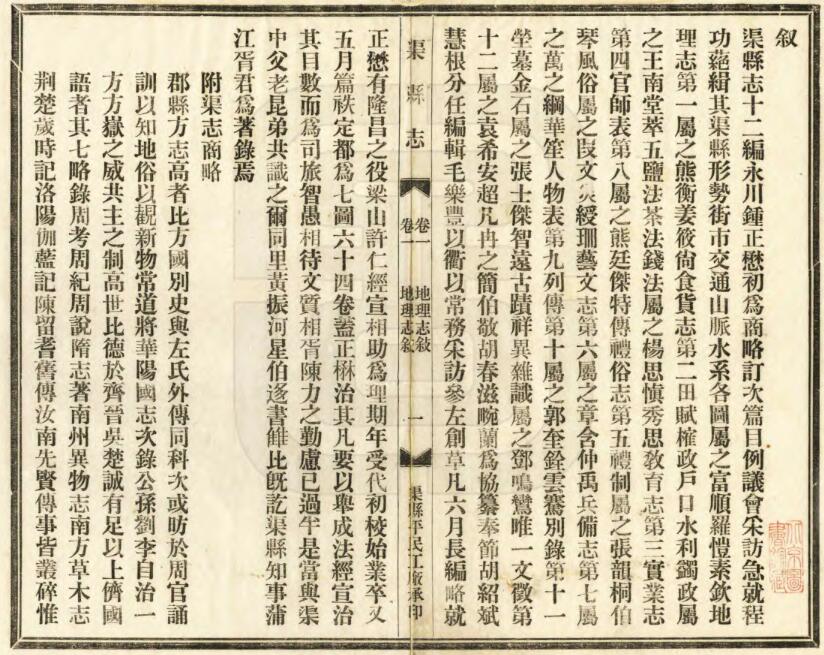 叙
渠縣志十二編永川鍾正懋初爲商略訂次篇目例議會采訪急就程
功蕝緝其渠縣形勢街市交通山脈水系各圖屬之富順羅愷素欽地
理志第一屬之熊衡姜筱尙食貨志第二田賦榷政戶口水利蠲政屬
之王南堂萃五鹽法茶法錢法屬之楊思慎秀思敎育志第三實業志
第四官師表第八屬之熊廷傑特傳禮俗志第五禮制屬之張韻桐伯
琴風俗屬之段文炎綬珊藝文志第六屬之章含仲禹兵備志第七屬
之萬之綱華笙人物表第九列傳第十屬之郭奎銓雲騫別錄第十一
塋墓金石屬之張士傑智遠古蹟祥異雜識屬之鄧鳴鸞唯一文徵第
十二屬之袁希安超凡冉之簡伯敬胡春滋畹蘭爲協纂奉節胡紹斌
慧根分任編輯毛樂豐以衢以常務采訪參左創草凡六月長編略就
正懋有隆昌之役梁山許仁經宣相助爲理期年受代初稜始業卒又
五月篇袟定都爲七圖六十四卷蓋正楙治其凡要以舉成法經宣治
其日數而爲司旅智愚相待文質相胥陳力之勤慮已過半是當與渠
中父老昆弟共識之爾同里黃振河星伯遂書雔比旣訖渠縣知事蒲
江胥君爲著錄焉
附渠志商略
郡縣方志高者比方國別史與左氏外傳同科次或昉於周官誦
訓以知地俗以觀新物常道將華陽國志次錄公孫劉李自治一
方方嶽之威共主之制高世比德於齊晉吳楚誠有足以上儕國
語者其七略錄周考周紀周說隋志著南州異物志南方草木志
荆楚歲時記洛陽伽藍記陳留耆舊傳汝南先賢傳事皆叢碎惟
渠縣志
卷一 地理志叙
卷一 地理志叙
一
渠縣平民工廠承印